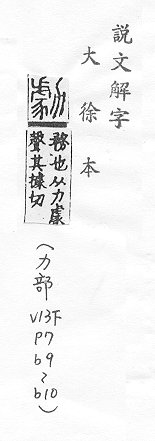 説文解字
大徐本
勮
務也从力豦
聲其據切
(力部
V13下
P7
b9
~
b10)